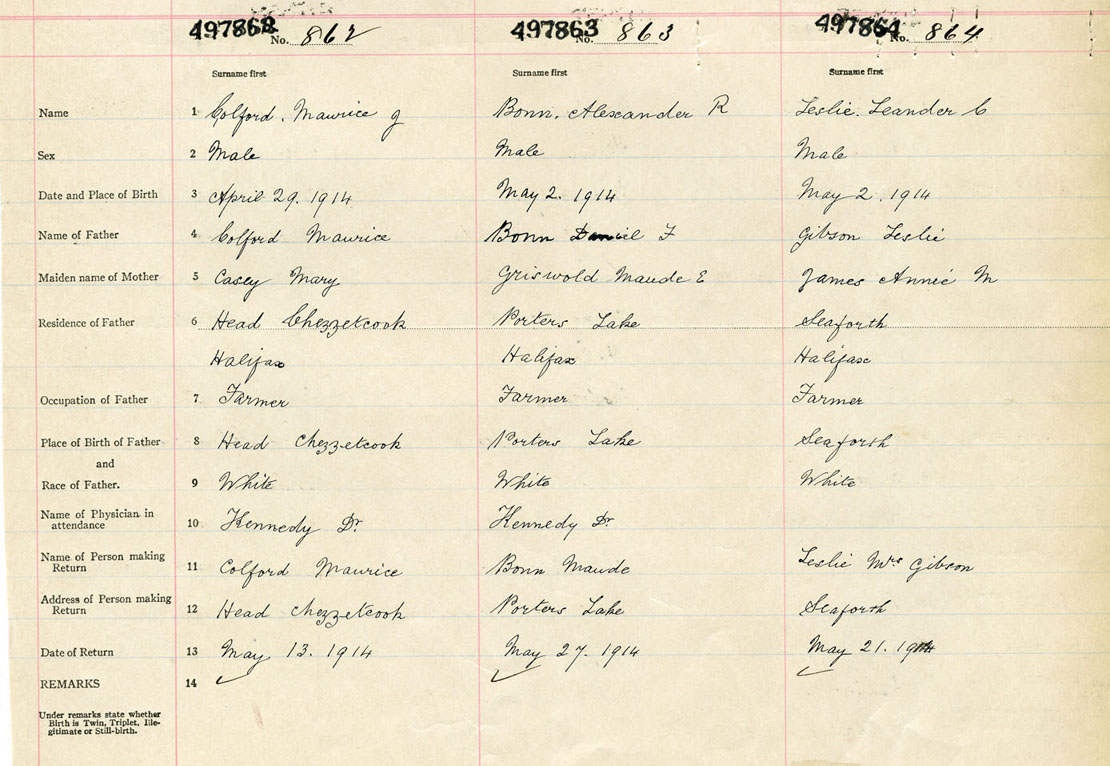 497862 No. 862 497863 No. 863 497864 No. 864
Surname first Surname first Surname first
Name 1 Colford, Maurice J Bonn, Alexander R Leslie. Leander C
Sex 2 Male Male Male
Date and Place of Birth 3 April 29. 1914 May 2. 1914 May 2, 1914
Name of Father 4 Colford Maurice Bonn Daniel F Gibson Leslie
Maiden name of Mother 5 Casey Mary Griswold Maude E James Annie M
Residence of Father 6 Head Chezzetcook Porters Lake Seaforth
Halifax Halifax Halifax
Occupation of Father 7 Farmer Farmer Farmer
Place of Birth of Father 8 Head Chezzetcook Porters Lake Seaforth
and
Race of Father. 9 White White White
Name of Physician in
attendance 10 Kennedy Dr Kennedy Dr
Name of Person making
Return 11 Colford Maurice Bonn Maude Leslie Mrs Gibson
Address of Person making
Return 12 Head Chezzetcook Porters Lake Seaforth
Date of Return 13 May 13. 1914 May 27. 1914 May 21. 1914
REMARKS 14
Under remarks state whether
Birth is Twin, Triplet, Ille-
gitimate or Still-birth.